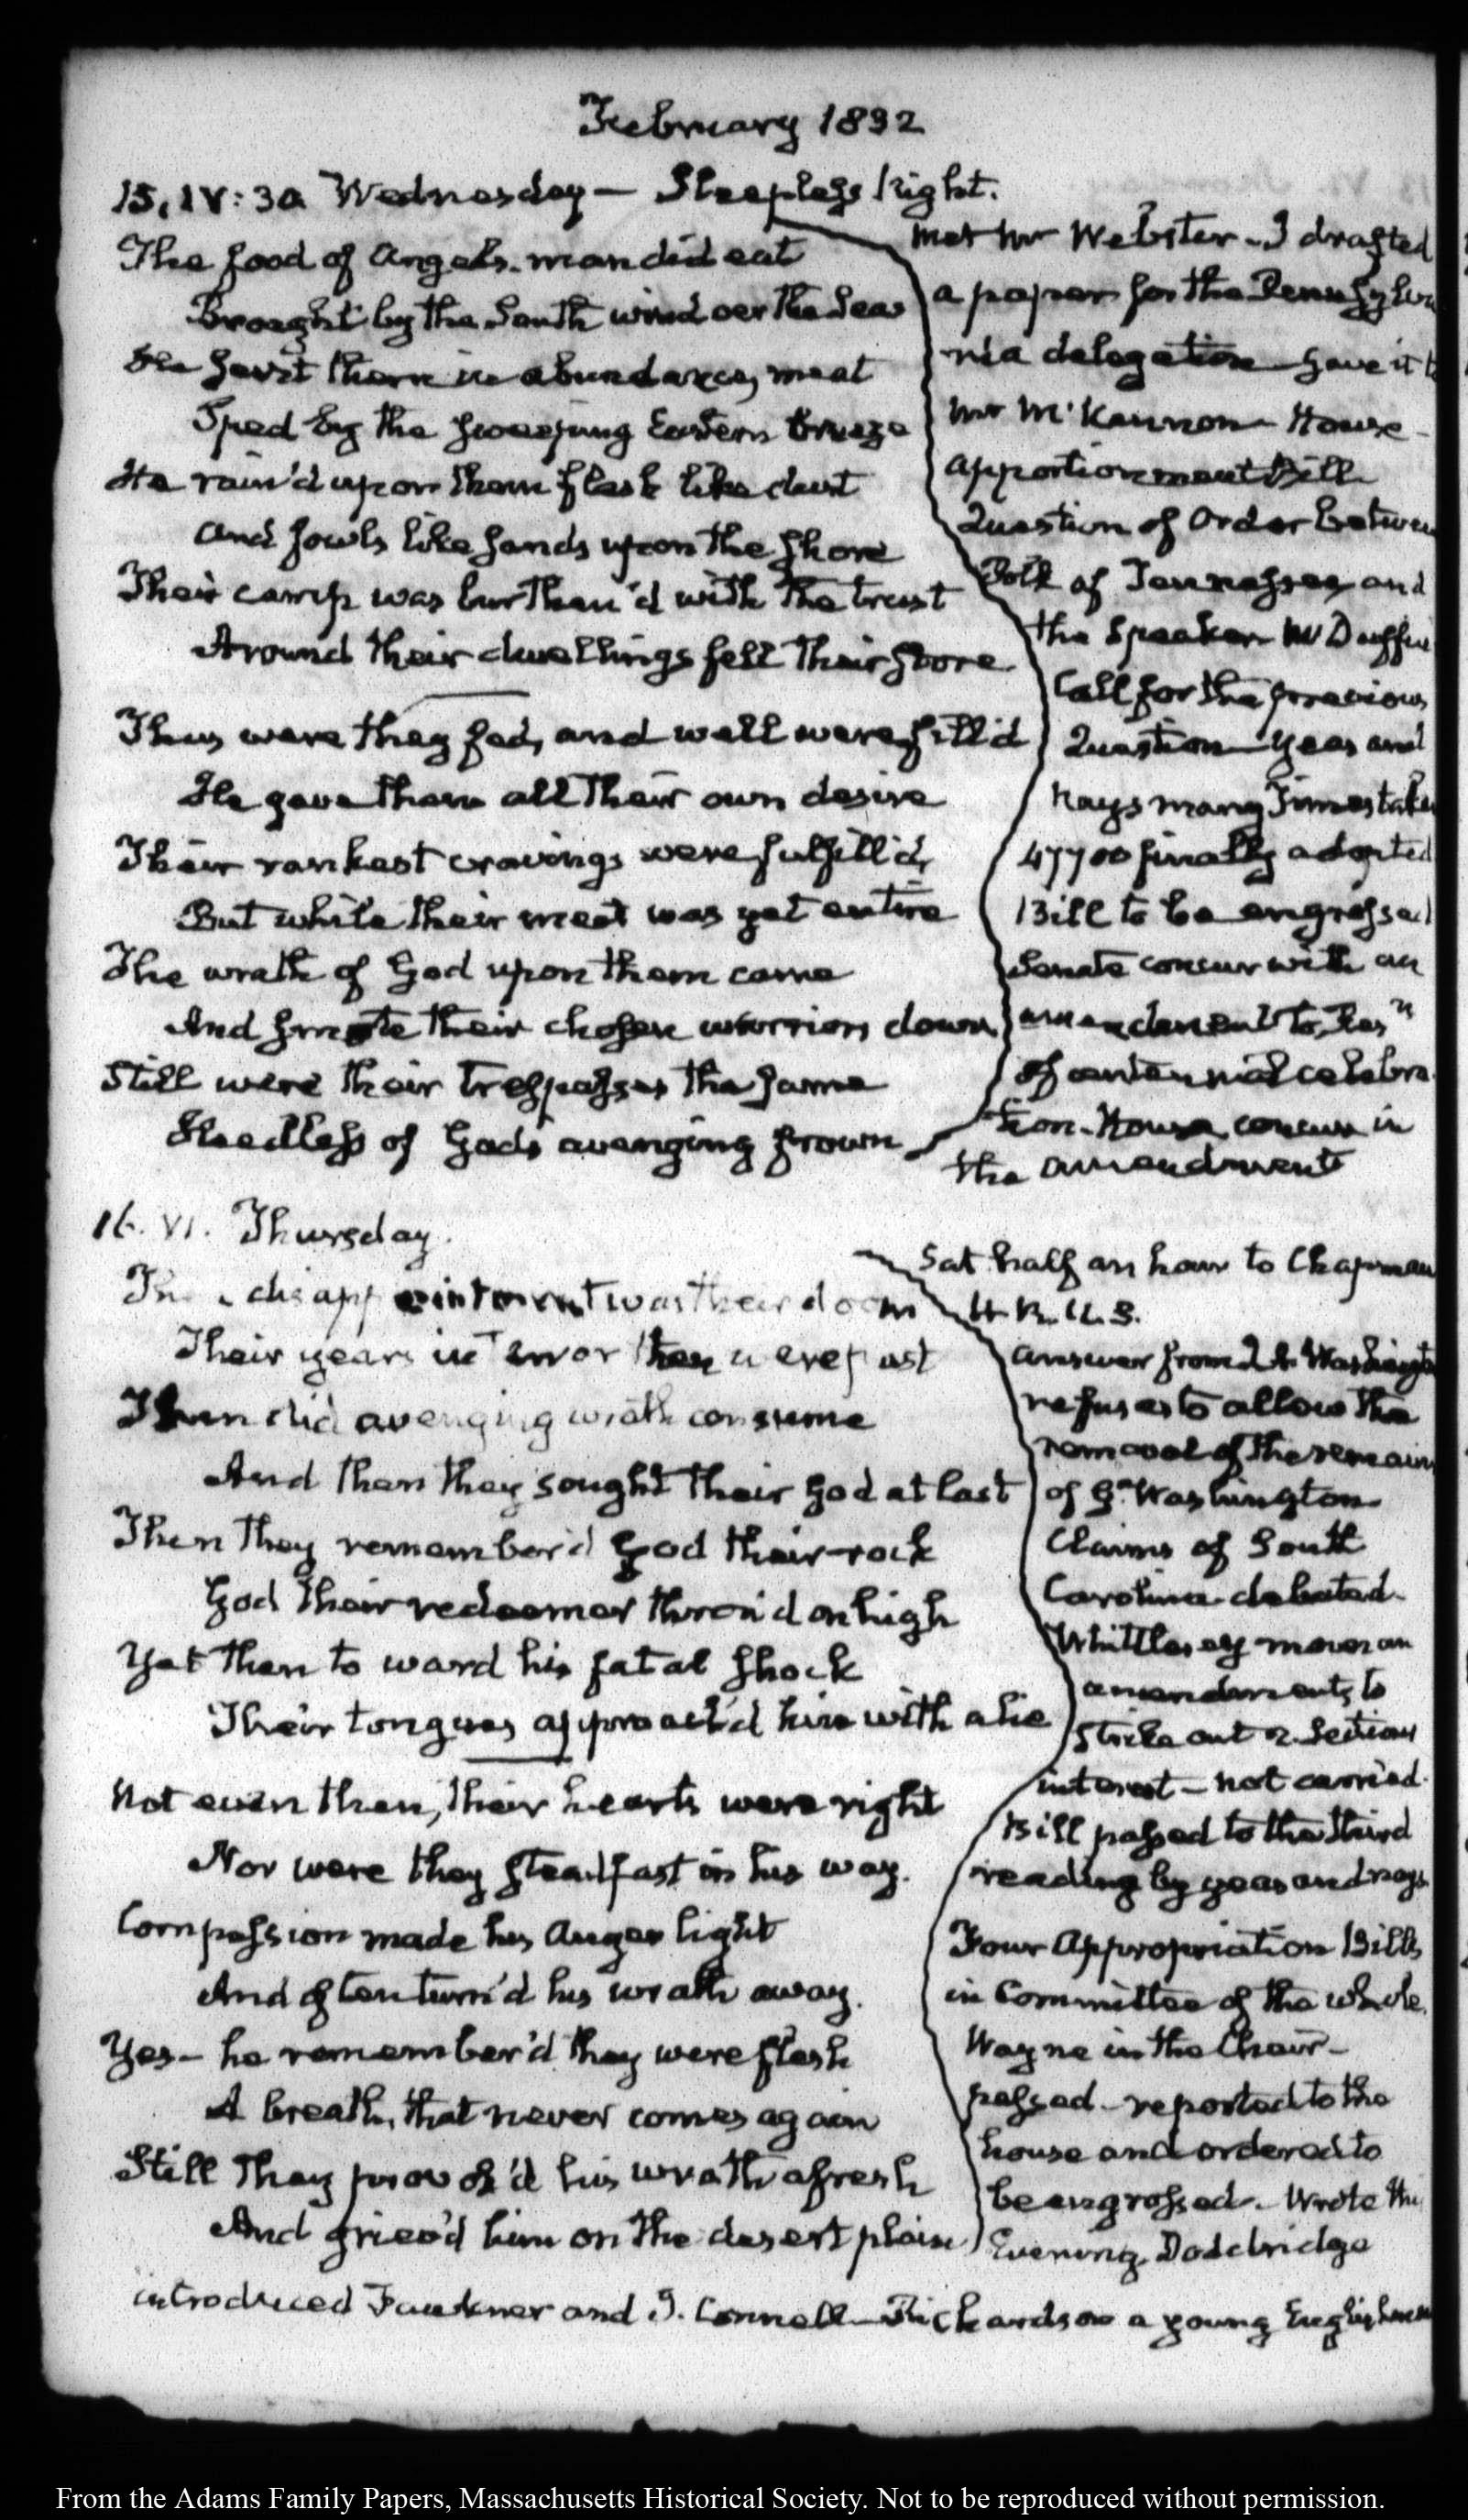 February 1832
15. IV:30 Wednesday — Sleepless Night.
The food of Angels, man did eat
Brought by the South wind oer the Seas
He sent them in abundance, meat
Sped by the sweeping Eastern breeze
He rain'd upon them flesh like dust
And fowls like sands upon the shore
Their camp was burthen'd with the trust
Around their dwellings fell their store
Thus were they fed, and well were fill'd
He gave them all their own desire
Their rankest cravings were fulfill'd,
But while their meat was yet entire
The wrath of God upon them came
And smote their chosen warriors down,
Still were their trespasses the same
Heedless of Gods avenging frown
met Mr Webster – I drafted
a paper for the Pennsylva
nia delegation – gave it to
Mr McKennon – House –
apportionment Bill
Question of Order between
Polk of Tennessee and
the Speaker – McDuffie
Call for the previous
Question – Yeas and
Nays many times taken
47700 finally adopted
Bill to be engrossed
Senate concur with an
amendment to Resn
of centennial celebra
tion – House concur in
the amendment
16. VI. Thursday.
disappointment was their doom
Their years in terror then were past
Then did avenging wrath consume
And then they sought their God at last
Then they remember'd God their rock
God their redeemer thron'd on high
Yet then to ward his fatal shock
Their tongues approach'd him with a lie
Not even then, their hearts were right
Nor were they steadfast in his way.
Compassion made his Anger light
And often turn'd his wrath away.
Yes – he remember'd they were flesh
A breath, that never comes again
Still they provok'd his wrath afresh
And griev'd him on the desert plain
Sat half an hour to Chapman
H.R.U.S.
answer from J. A. Washington
refuses to allow the
removal of the remains
of G. Washington
Claims of South
Carolina debated.
Whittlesey moves an
amendment, to
strike out 2. Section
interest – not carried.
Bill passed to the third
reading by yeas and nays
Four Appropriation Bills
in Committee of the whole.
Wayne in the Chair –
passed – reported to the
house and ordered to
be engrossed. – Wrote this
Evening. Doddridge
introduced Faulkner and J. Connell – Richardson a young Englishman
From the Adams Family Papers, Massachusetts Historical Society. Not to be reproduced without permission.